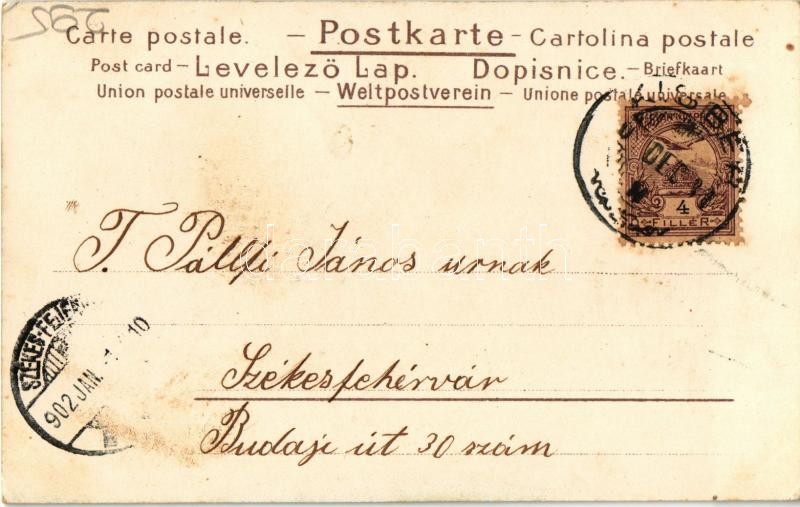 Carte postale. – Postkarte – Cartolina postale
Post card – Levelező Lap. Dopisnice. – Briefkaart
Union postale universelle – Weltpostverein – Unione postale universale
4
FILLÉR
T. Pállfi János úrnak
902 JAN. 10
Székesfehérvár
Budai út 30 szám